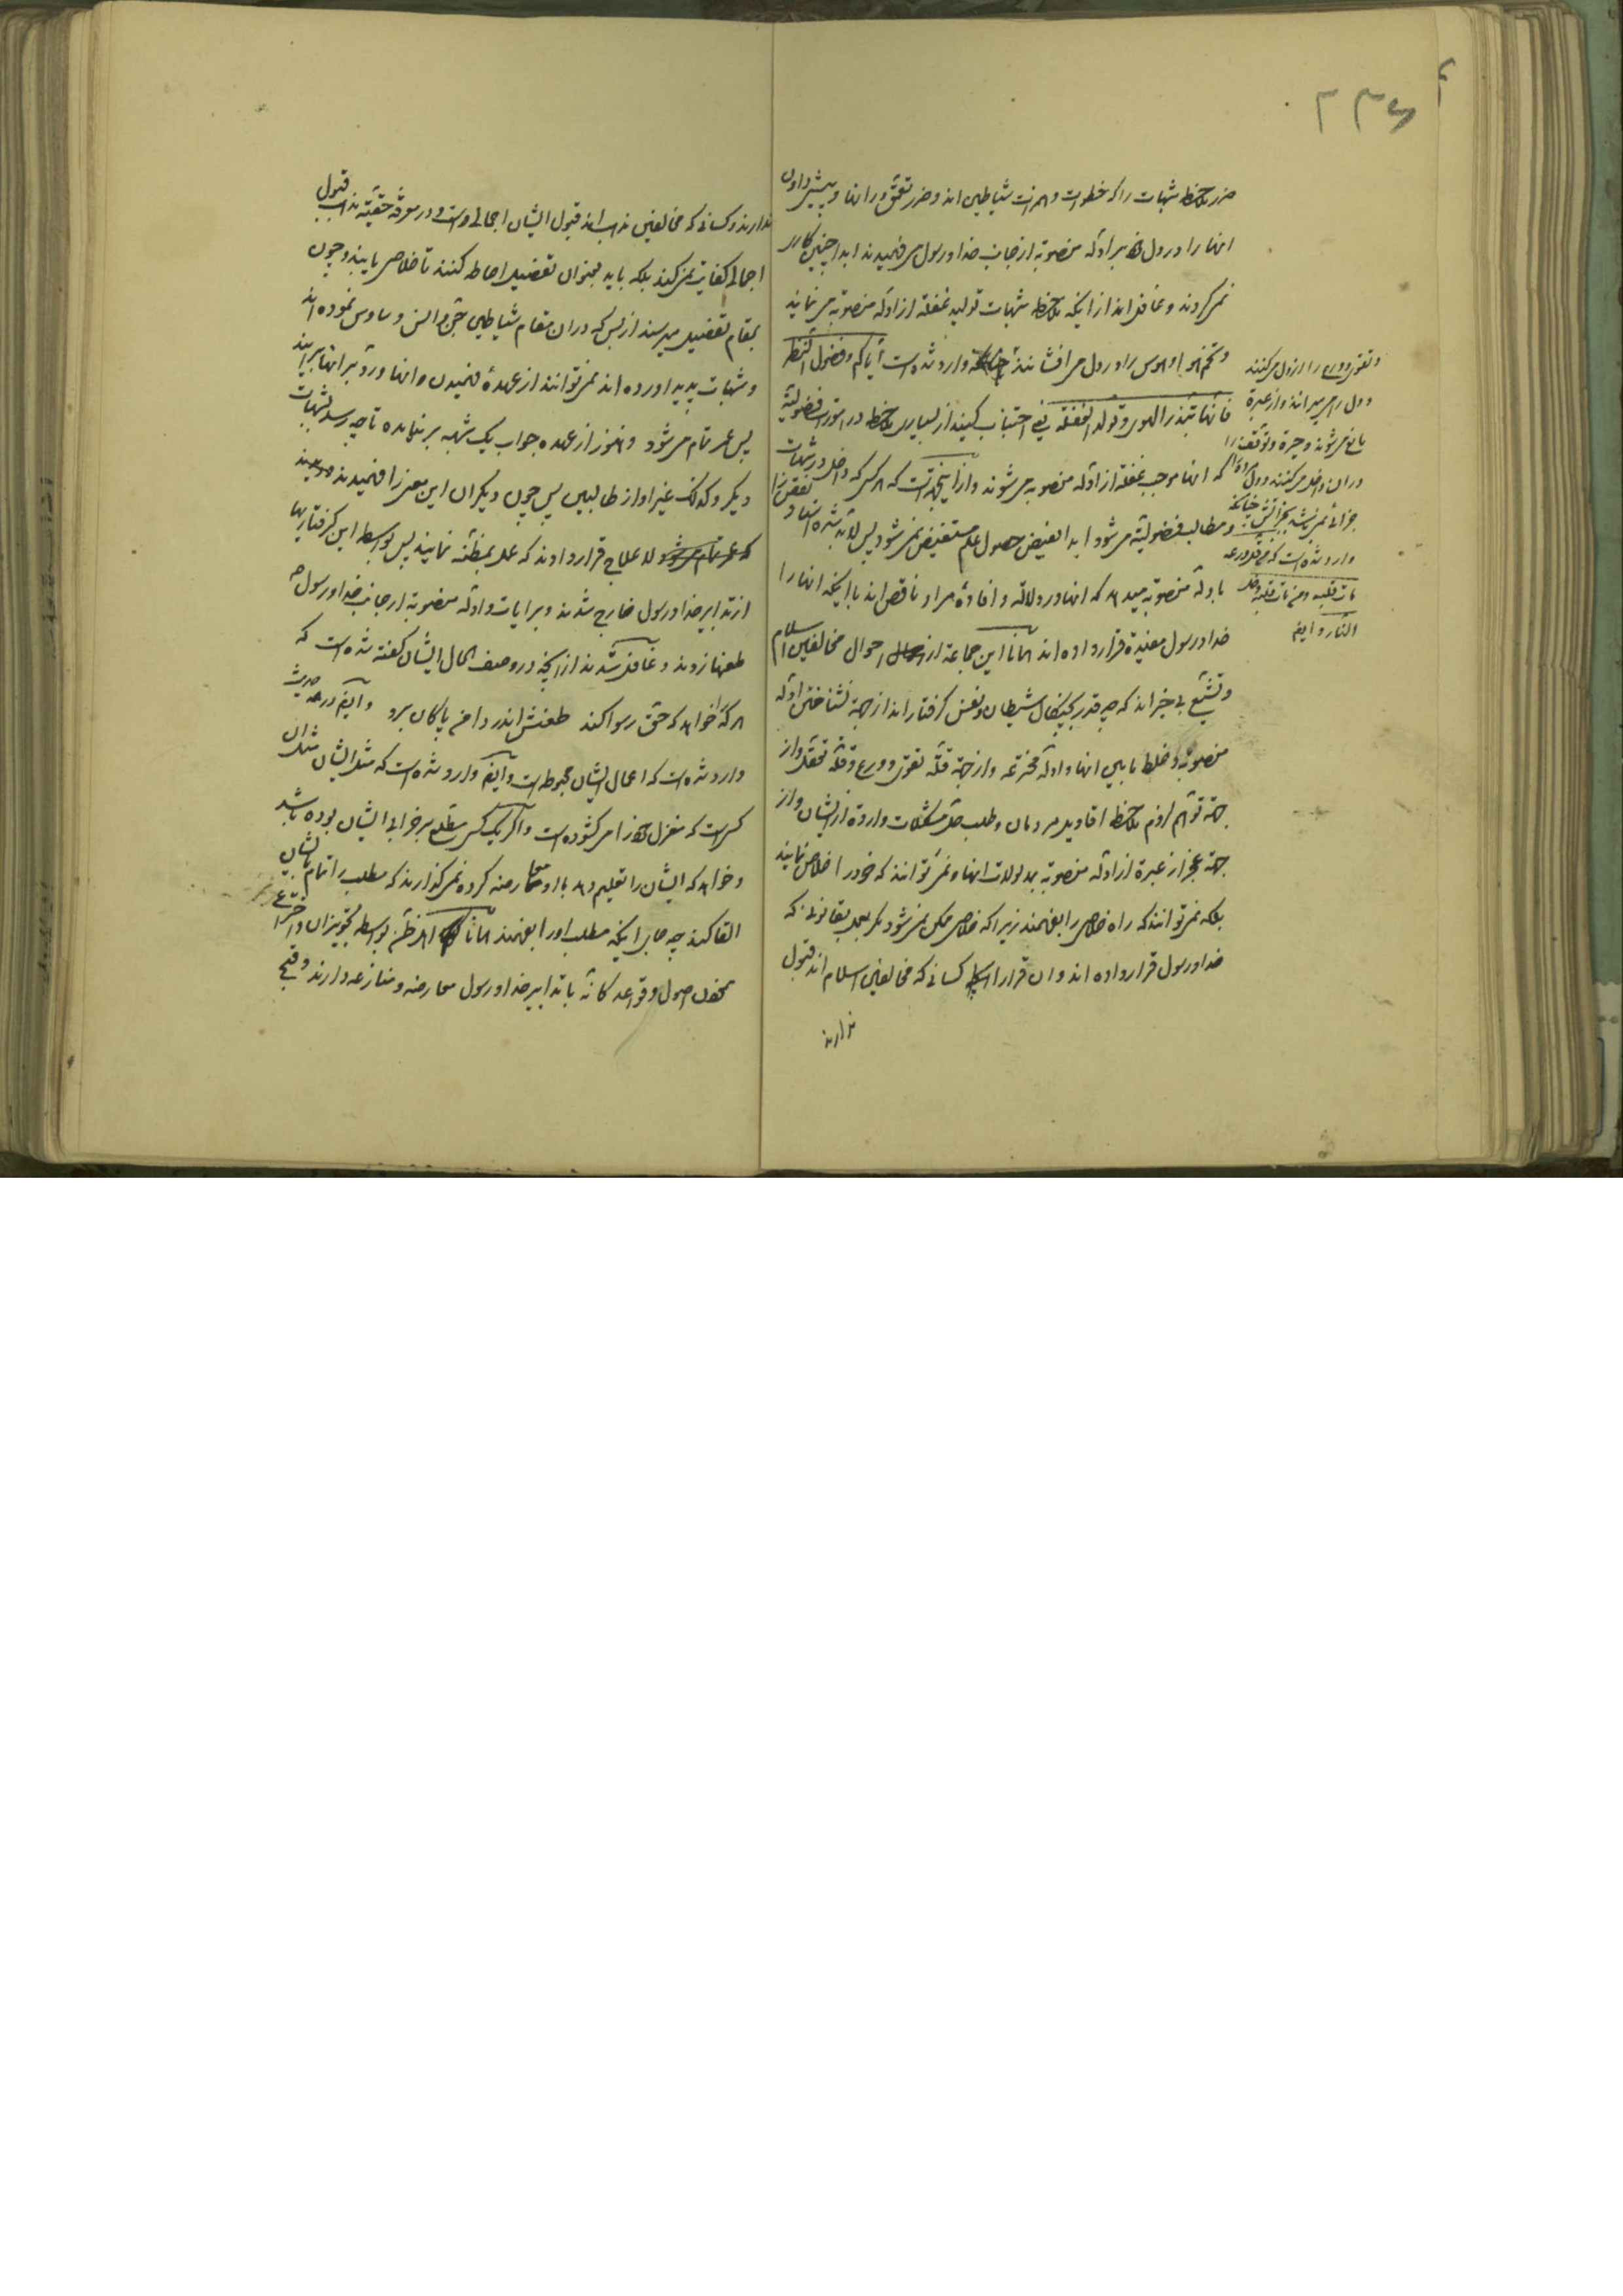 ۲۳۶
ضرر ملاحظه شبهات را که خطوات و همزات شیاطین اند و ضرر تعمّق در انها و پیش دادن
انها را در دل بر ادلّه منصوبه از جانب خدا و رسول می فهمیدند ابدا چنین کاری
نمی کردند و غافل اند از اینکه ملاحظه شبهات تولید غفلة از ادلّه منصوبه می نماید
و تخم هوا و هوس را در دل می افشانند چنانکه وارد شده است ایّاکم و فضول النّظر
فانّها تبذر الهوی و تولد الغفلة یعنی اجتناب کنید از بسیاری ملاحظه در امورات فضولیّة
که انها موجب غفلة از ادلّه منصوبه می شوند و از اینجهت است که هر کس که داخل در شبهات
و مطالب فضولیّة می شود ابدا بفیض حصول علم مستفیض نمی شود پس لابد شده اسناد نقص را
بادلّه منصوبه میدهد که انها در دلالة و افادهٔ مراد ناقص اند با اینکه انها را
خدا و رسول مفیده قرار داده اند همانا این جماعة از احوال مخالفین اسلام
و تشیّع بی خبر اند که چه قدر بچنگال شیطان و نفس گرفتار اند از جهة نشناختن ادلّه
منصوبه و خلط ما بین انها و ادلّه مخترعه و از جهة قلّة تقوی و ورع و قلّة تعقّل و از
جهة توأم لزوم ملاحظه اقاویل مردمان و طلب حلّ مشکلات وارده از ایشان و از
جهة عجز از عبرة از ادلّه منصوبه بمدلولات انها و نمی توانند که خود را خلاص نمایند
بلکه نمی توانند که راه خلاصی را بفهمند زیرا که خلاصی ممکن نمی شود مگر بعمل بقانونی که
خدا و رسول قرار داده اند و ان قرار را کسانی که مخالفین اسلام اند قبول
ندارند
و تقوی و ورع را از دل می کنند
و دل را می میرانند و از عبرة
مانع می شوند و حیرة و توقّف را
در ان داخل می کنند و دل
جزائی نمی باشد بجز اتش چنانکه
وارد شده است که من قلّ ورعه
مات قلبه و من مات قلبه دخل
النّار و ایضا
ندارند و کسانی که مخالفین مذهب اند قبول ایشان اجمالی است و در معرفة حقیّة مذهب قبول
اجمالی کفایت نمی کند بلکه باید بعنوان تفصیل احاطه کنند تا خلاصی یابند و چون
بمقام تفصیل میرسند از بس که در ان مقام شیاطین جنّ و انس وساوس نموده اند
و شبهات پدید اورده اند نمی توانند از عهدهٔ فهمیدن انها و ردّ بر انها بر ایند
پس عمر تمام می شود و هنوز از عهده جواب یک شبهه بر نیامده تا چه رسد بشبهات
دیگر و کذلک غیر او از طالبین پس چون دیگران این معنی را فهمیدند و دیدند
که عمر تمام می شود لا علاج قرار دادند که عمل بمظنّه نمایند پس بواسطه این گرفتاریها
از تدابیر خدا و رسول خارج شدند و بر ایات و ادلّه منصوبه از جانب خدا و رسول ص
طعنها زدند و غافل شدند از انچه در وصف الحال ایشان گفته شده است که
هر که را خواهد که حق رسوا کند طعنش اندر دامن پاکان برد و ایضا در حدیث
وارد شده است که اعمال ایشان محبوط است و ایضا وارد شده است که مثل ایشان مثل ان
کس است که منزل را می کشوده است و اگر یک کس مطّلع بر خرابی ایشان بوده باشد
و خواهد که ایشان را تعلیم دهد با او معارضه کرده نمی گذارند که مطلب را تمام بایشان
القا کند چه جای اینکه مطلب او را بفهمند همانا اهل ظنّ بواسطه تجویز ان و اختراع
نمودن اصول و قواعد کانّه با تدابیر خدا و رسول معارضه و منازعه دارند و قبح